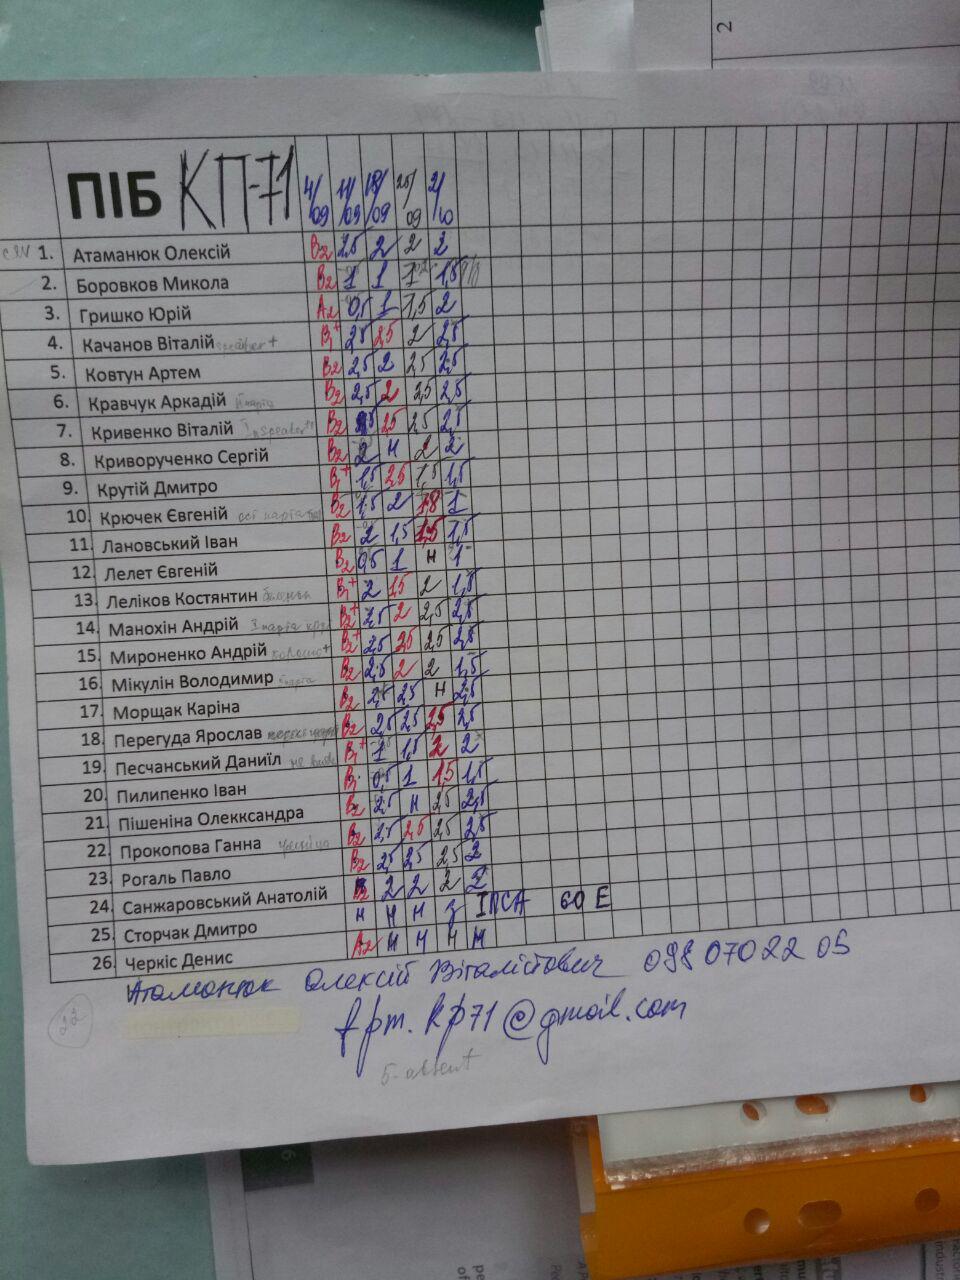 2
ПІБ КП-71 4/09 11/09 18/09 25/09 2/10
1. Атаманюк Олексій B2 2,5 2 2 2
2. Боровков Микола B2 1 1 1 1,5
3. Гришко Юрій A2 0,5 1 1,5 2
4. Качанов Віталій speaker + B1+ 2,5 2,5 2 2,5
5. Ковтун Артем B2 2,5 2 2,5 2,5
6. Кравчук Аркадій B2 2,5 2 2,5 2,5
7. Кривенко Віталій speaker B2 2,5 2,5 2,5
8. Криворученко Сергій B2 2 н 2 2
9. Крутій Дмитро B1+ 1,5 2,5 1,5 1,5
10. Крючек Євгеній B2 1,5 2 1,8 1
11. Лановський Іван B2 2 1,5 1,5 1,5
12. Лелет Євгеній B2 0,5 1 н 1
13. Леліков Костянтин B1+ 2 1,5 2 1,5
14. Манохін Андрій B2+ 2,5 2 2,5 2,5
15. Мироненко Андрій B2+ 2,5 2,5 2,5 2,5
16. Мікулін Володимир B2 2,5 2 2 1,5
17. Морщак Каріна B2 2,5 2,5 н 2,5
18. Перегуда Ярослав B2 2,5 2,5 2,5 2,5
19. Песчанський Даниїл B1+ 1 1,5 2 2
20. Пилипенко Іван B1 0,5 1 1,5 1,5
21. Пішеніна Олекксандра B2 2,5 н 2,5 2,5
22. Прокопова Ганна B2 2,5 2,5 2,5 2,5
23. Рогаль Павло B2 2,5 2,5 2,5 2
24. Санжаровський Анатолій B2 2 2 2 2
25. Сторчак Дмитро н н н з ІПСА 60 Е
26. Черкіс Денис A2 н н н н
Атаманюк Олексій Віталійович 098 070 22 05
22
fpm.kp71@gmail.com
5-absent